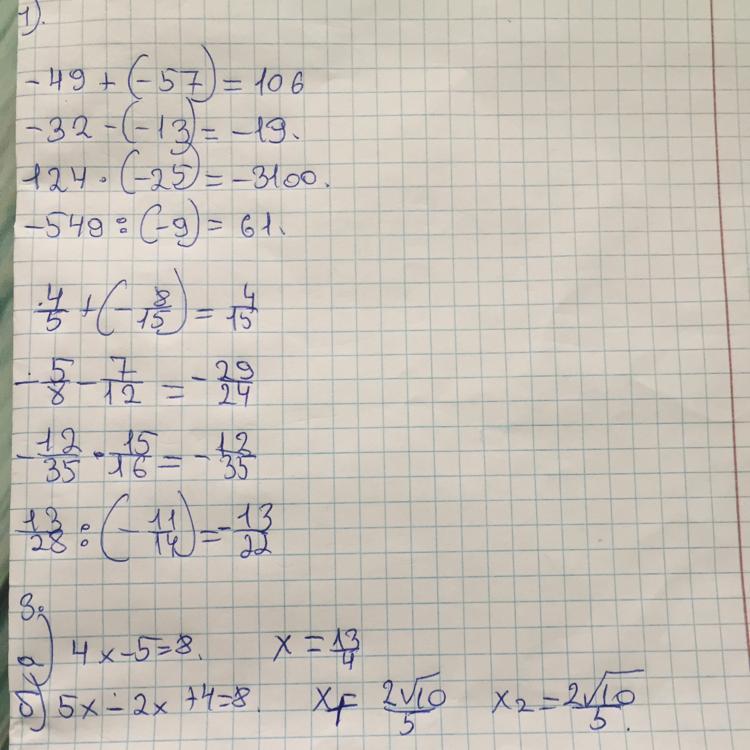 1).
-49 + (-57) = 106
-32 - (-13) = -19.
124 · (-25) = -3100.
-549 : (-9) = 61.
4/5 + (-8/15) = 4/15
-5/8 - 7/12 = -29/24
-12/35 · 15/16 = -12/35
13/28 : (-11/14) = -13/22
3.
а) 4x - 5 = 8. x = 13/4
б) 5x ÷ 2x + 4 = 8. x₁ = 2√10/5 x₂ = 2√10/5.